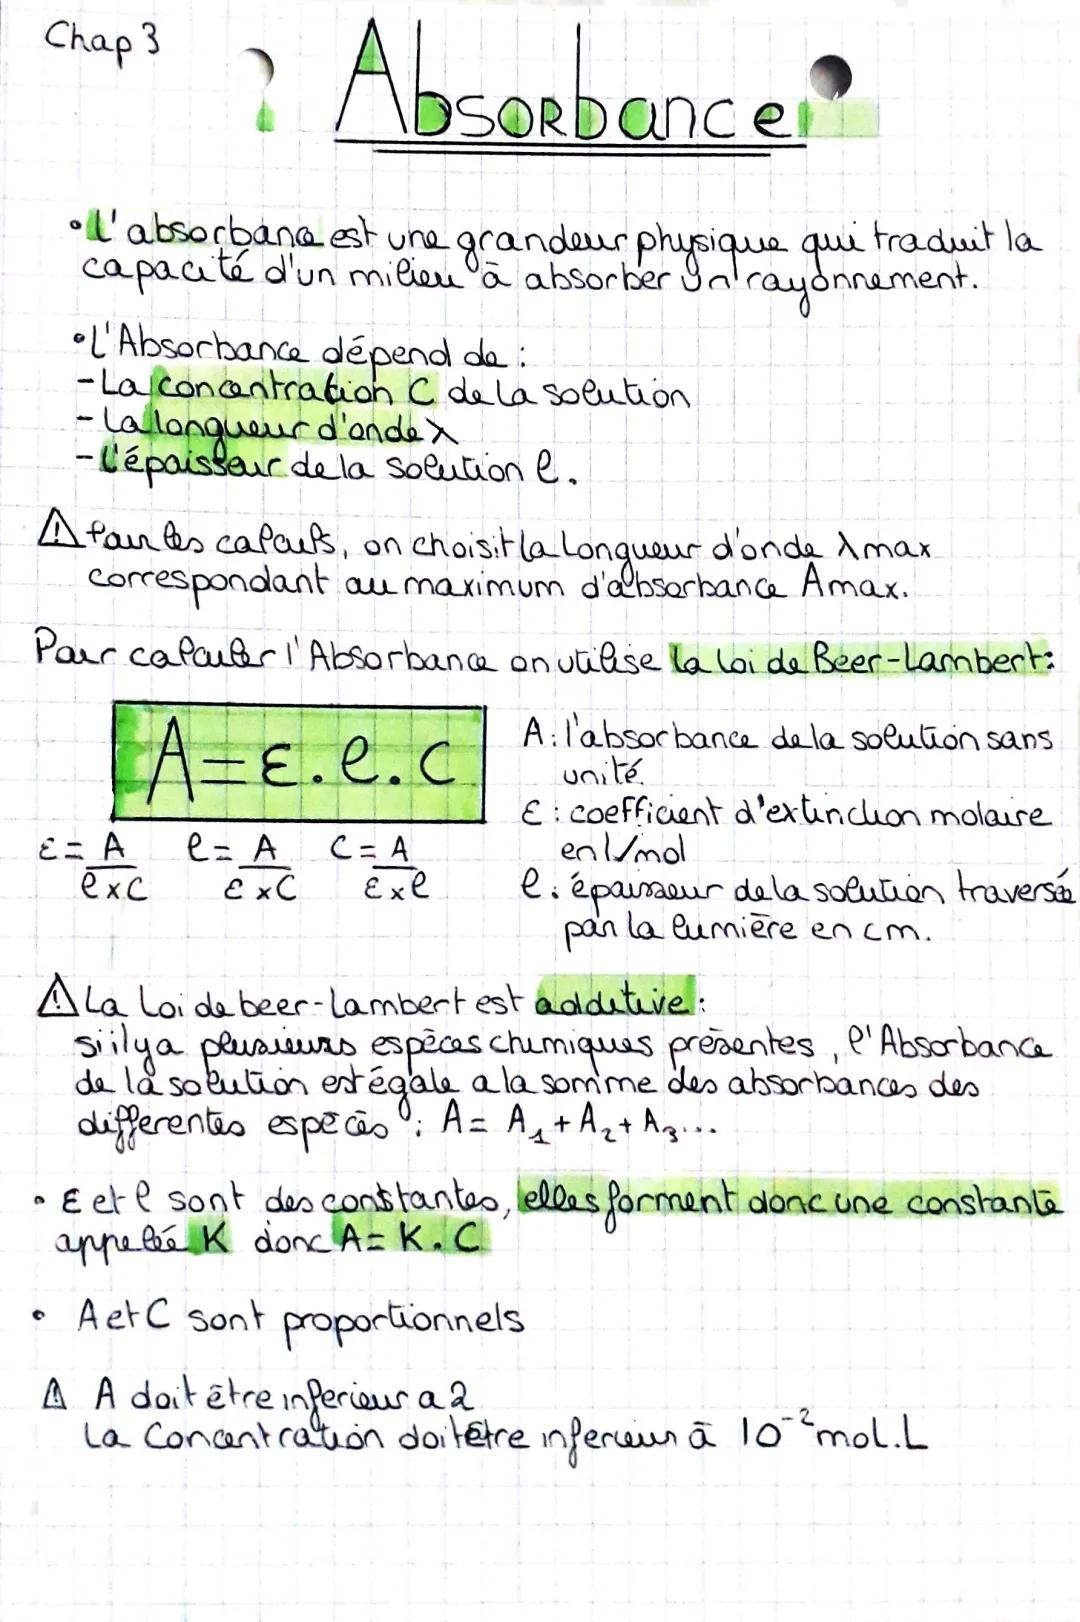 Chap 3
Absorbance
• L'absorbance est une grandeur physique qui traduit la
capacité d'un milieu à absorber un rayonnement.
• L'Absorbance dépend de :
- La concentration C de la solution
- La longueur d'onde λ
- L'épaisseur de la solution l.
⚠ Pour les calculs, on choisit la longueur d'onde λmax
correspondant au maximum d'absorbance Amax.
Pour calculer l'Absorbance on utilise la loi de Beer-Lambert:
A=ε.l.c
A: l'absorbance de la solution sans
unité.
ε : coefficient d'extinction molaire
en l/mol
l: épaisseur de la solution traversée
par la lumière en cm.
ε = A / l×C    l = A / ε×C    C = A / ε×l
⚠ La loi de beer-Lambert est additive :
si il y a plusieurs espèces chimiques présentes, l'Absorbance
de la solution est égale a la somme des absorbances des
differentes espèces : A= A₁ + A₂ + A₃...
• ε et l sont des constantes, elles forment donc une constante
appelée K donc A= K.C
• A et C sont proportionnels
⚠ A doit être inferieur a 2
La Concentration doit être inferieur à 10⁻² mol.L